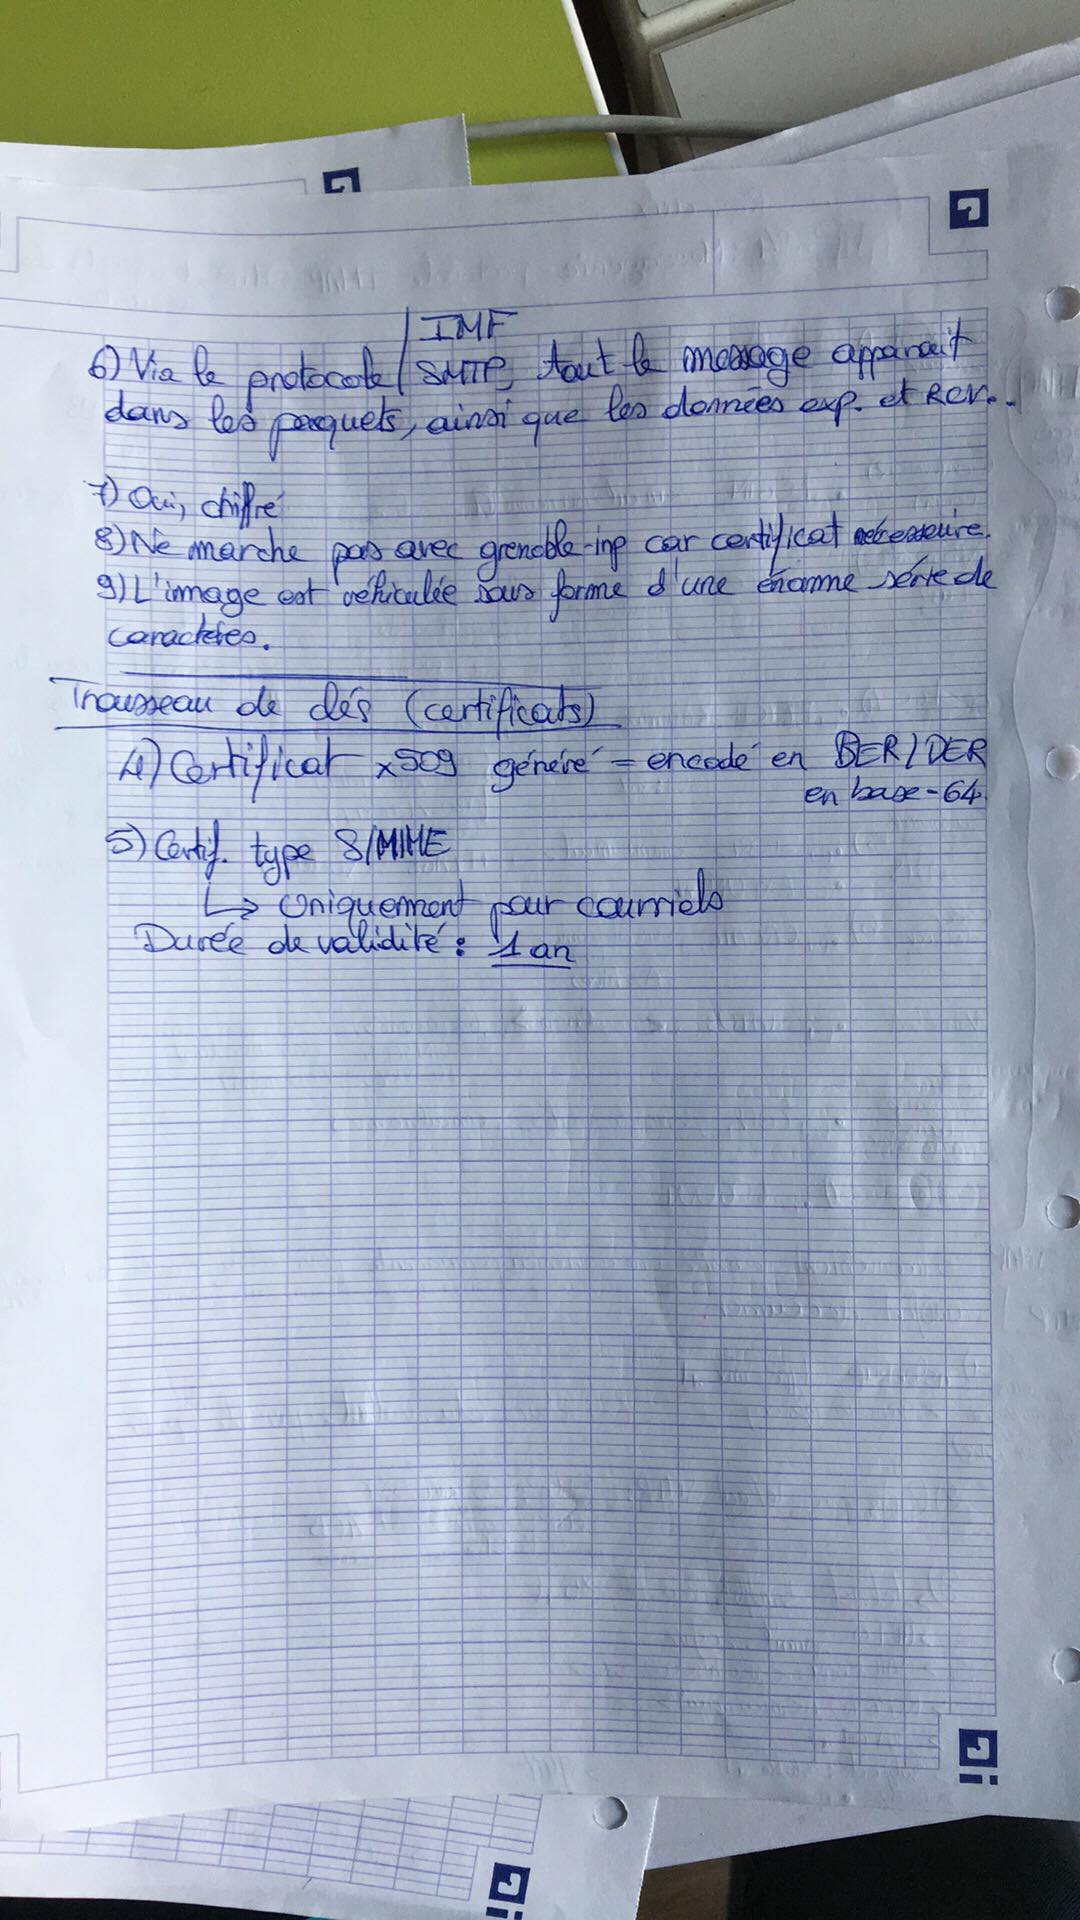 IMF
6) Via le protocole / SMTP, tout le message apparait
dans les paquets, ainsi que les données exp. et Rcv..
7) Oui, chiffré
8) Ne marche pas avec grenoble-inp car certificat nécessaire.
9) L'image est véhiculée sous forme d'une énorme série de
caractères.
Trousseau de clés (certificats)
4) Certificat x509 généré = encodé en BER/DER
en base-64
5) Certif. type S/MIME
↳ Uniquement pour courriels
Durée de validité : 1 an